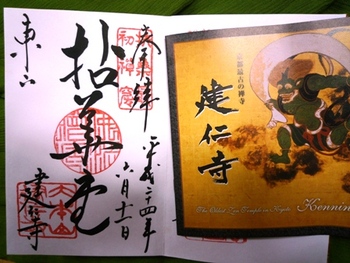 奉拝
平成二十四年
六月十一日
拈華堂
東山
建仁寺
京都最古の禅寺
建仁寺
The Oldest Zen Temple in Kyoto
Kennin